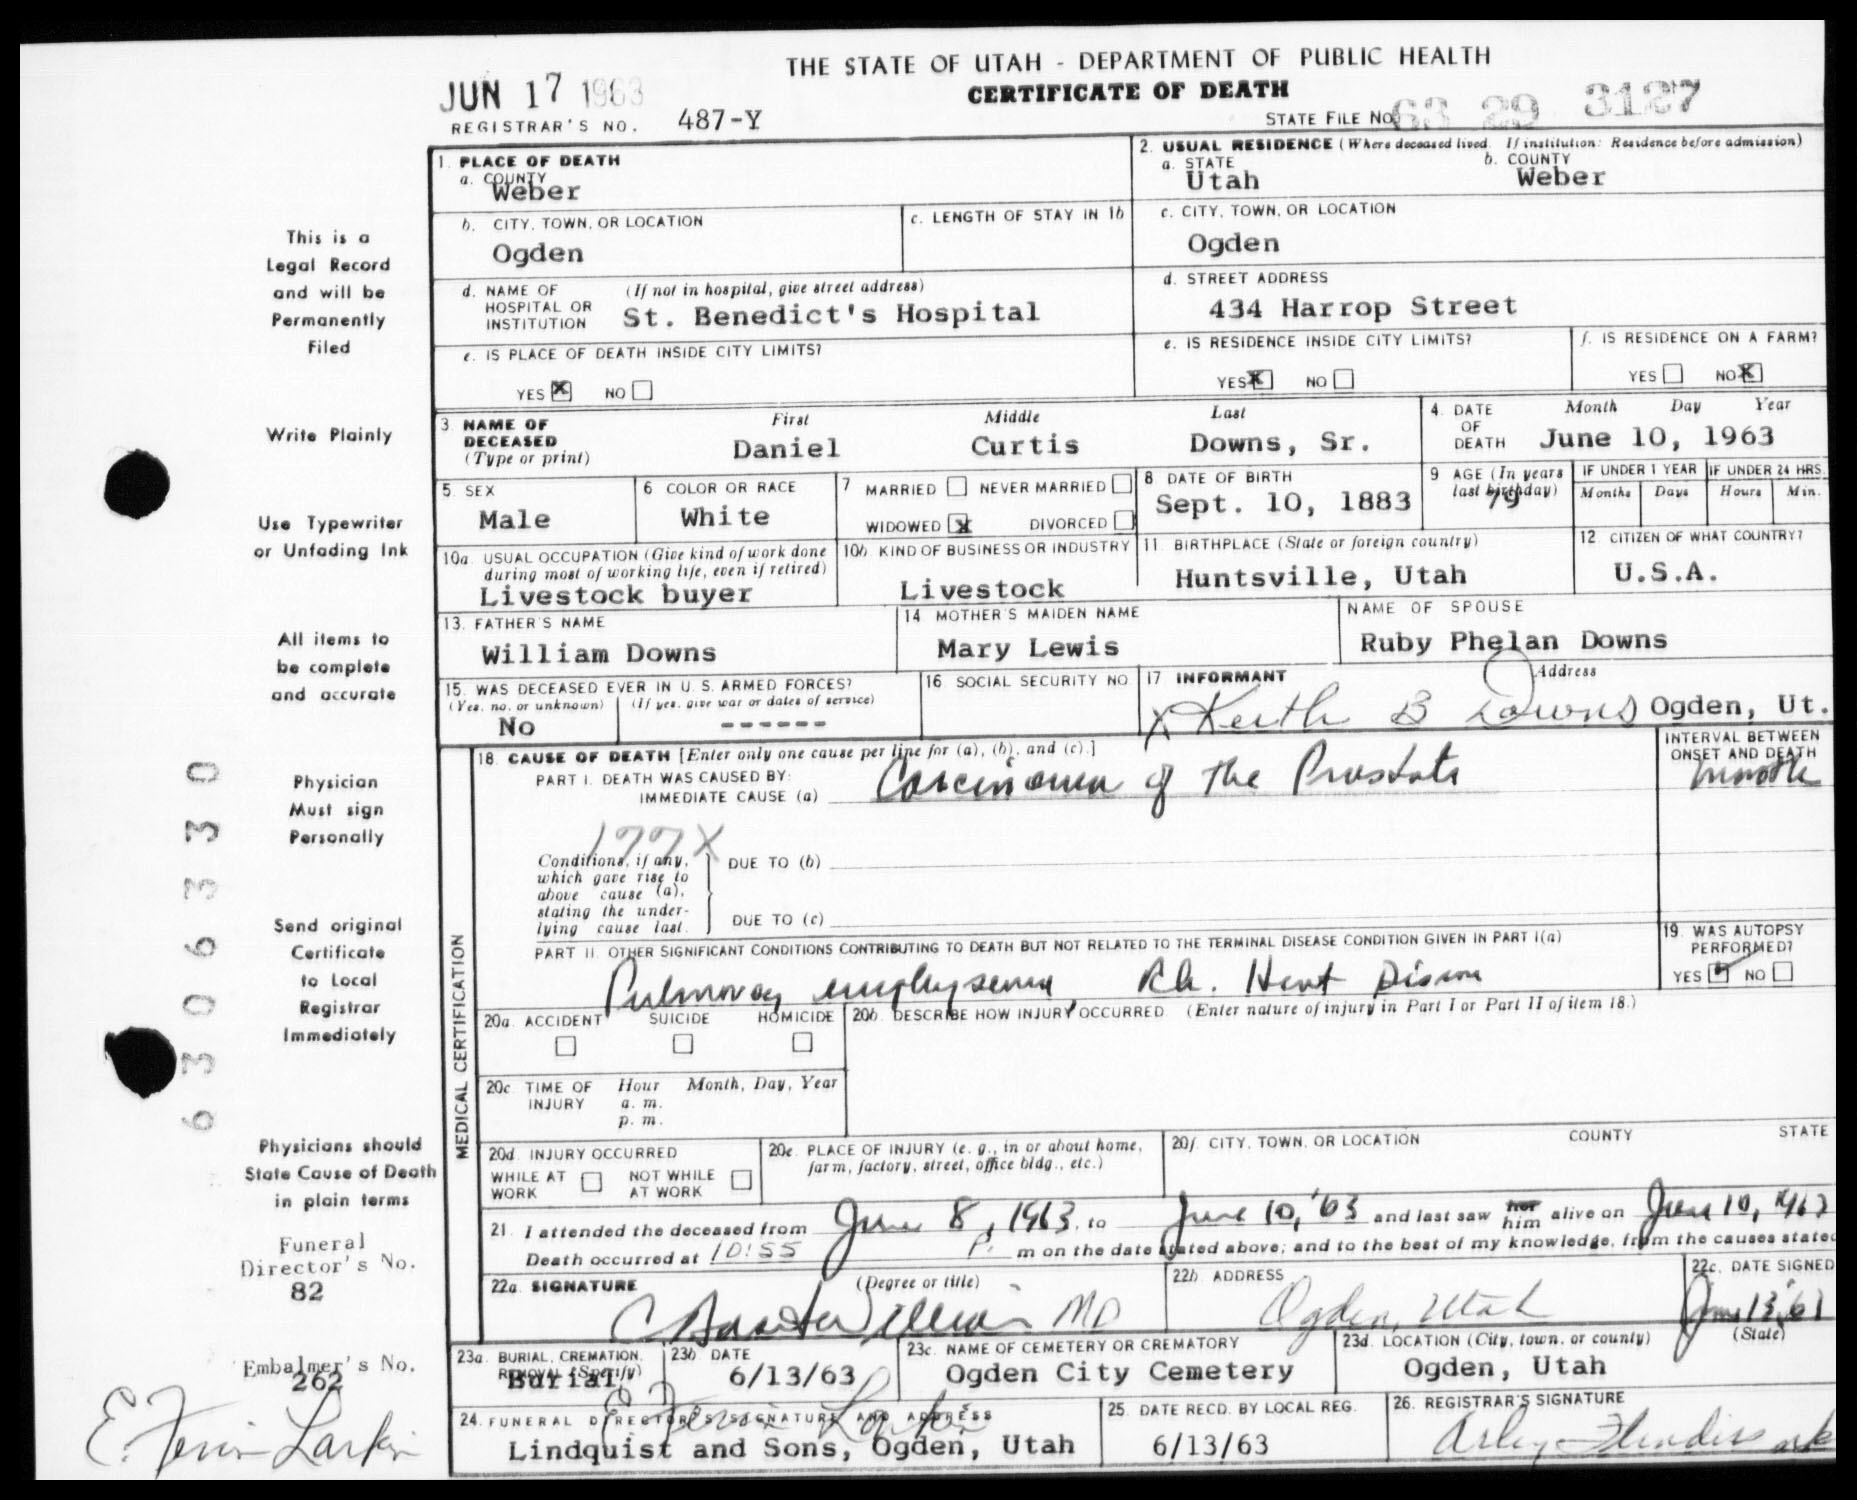 THE STATE OF UTAH - DEPARTMENT OF PUBLIC HEALTH
JUN 17 1963
CERTIFICATE OF DEATH
REGISTRAR'S NO. 487-Y
STATE FILE NO. 63 29 3127
1. PLACE OF DEATH
a. COUNTY
Weber
2. USUAL RESIDENCE (Where deceased lived. If institution: Residence before admission)
a. STATE
Utah
b. COUNTY
Weber
b. CITY, TOWN, OR LOCATION
Ogden
c. LENGTH OF STAY IN 1b
c. CITY, TOWN, OR LOCATION
Ogden
d. NAME OF HOSPITAL OR INSTITUTION
(If not in hospital, give street address)
St. Benedict's Hospital
d. STREET ADDRESS
434 Harrop Street
e. IS PLACE OF DEATH INSIDE CITY LIMITS?
YES X NO
e. IS RESIDENCE INSIDE CITY LIMITS?
YES X NO
f. IS RESIDENCE ON A FARM?
YES NO X
3. NAME OF DECEASED
(Type or print)
First Middle Last
Daniel Curtis Downs, Sr.
4. DATE OF DEATH
Month Day Year
June 10, 1963
5. SEX
Male
6 COLOR OR RACE
White
7 MARRIED NEVER MARRIED
WIDOWED X DIVORCED
8 DATE OF BIRTH
Sept. 10, 1883
9 AGE (In years last birthday)
79
IF UNDER 1 YEAR
Months Days
IF UNDER 24 HRS.
Hours Min.
10a. USUAL OCCUPATION (Give kind of work done
during most of working life, even if retired)
Livestock buyer
10b. KIND OF BUSINESS OR INDUSTRY
Livestock
11. BIRTHPLACE (State or foreign country)
Huntsville, Utah
12 CITIZEN OF WHAT COUNTRY?
U.S.A.
13. FATHER'S NAME
William Downs
14 MOTHER'S MAIDEN NAME
Mary Lewis
NAME OF SPOUSE
Ruby Phelan Downs
15. WAS DECEASED EVER IN U. S. ARMED FORCES?
(Yes, no, or unknown) (If yes, give war or dates of service)
No ------
16 SOCIAL SECURITY NO.
17 INFORMANT Address
X Keith B Downs Ogden, Ut.
18. CAUSE OF DEATH [Enter only one cause per line for (a), (b), and (c).]
PART I. DEATH WAS CAUSED BY:
IMMEDIATE CAUSE (a) Carcinoma of the Prostate
INTERVAL BETWEEN
ONSET AND DEATH
177X
Conditions, if any,
which gave rise to
above cause (a),
stating the under-
lying cause last.
DUE TO (b)
DUE TO (c)
PART II. OTHER SIGNIFICANT CONDITIONS CONTRIBUTING TO DEATH BUT NOT RELATED TO THE TERMINAL DISEASE CONDITION GIVEN IN PART I(a)
Pulmonary emphysema, Rh. Heart Disease
19. WAS AUTOPSY
PERFORMED?
YES NO
20a. ACCIDENT SUICIDE HOMICIDE
20b. DESCRIBE HOW INJURY OCCURRED (Enter nature of injury in Part I or Part II of item 18.)
20c. TIME OF INJURY
Hour Month, Day, Year
a. m.
p. m.
20d. INJURY OCCURRED
WHILE AT WORK NOT WHILE AT WORK
20e. PLACE OF INJURY (e. g., in or about home,
farm, factory, street, office bldg., etc.)
20f. CITY, TOWN, OR LOCATION COUNTY STATE
21. I attended the deceased from June 8, 1963, to June 10, '63 and last saw her him alive on June 10, 1963
Death occurred at 10:55 P. m on the date stated above; and to the best of my knowledge, from the causes stated
22a. SIGNATURE (Degree or title)
MD
22b. ADDRESS
Ogden, Utah
22c. DATE SIGNED
June 13, '63
23a. BURIAL, CREMATION, REMOVAL (Specify)
Burial
23b DATE
6/13/63
23c. NAME OF CEMETERY OR CREMATORY
Ogden City Cemetery
23d. LOCATION (City, town, or county) (State)
Ogden, Utah
24. FUNERAL DIRECTOR'S SIGNATURE AND ADDRESS
E. Larkin
Lindquist and Sons, Ogden, Utah
25. DATE RECD. BY LOCAL REG.
6/13/63
26. REGISTRAR'S SIGNATURE
MEDICAL CERTIFICATION
This is a
Legal Record
and will be
Permanently
Filed
Write Plainly
Use Typewriter
or Unfading Ink
All items to
be complete
and accurate
Physician
Must sign
Personally
Send original
Certificate
to Local
Registrar
Immediately
Physicians should
State Cause of Death
in plain terms
Funeral
Director's No.
82
Embalmer's No.
262
E. Larkin
6306330